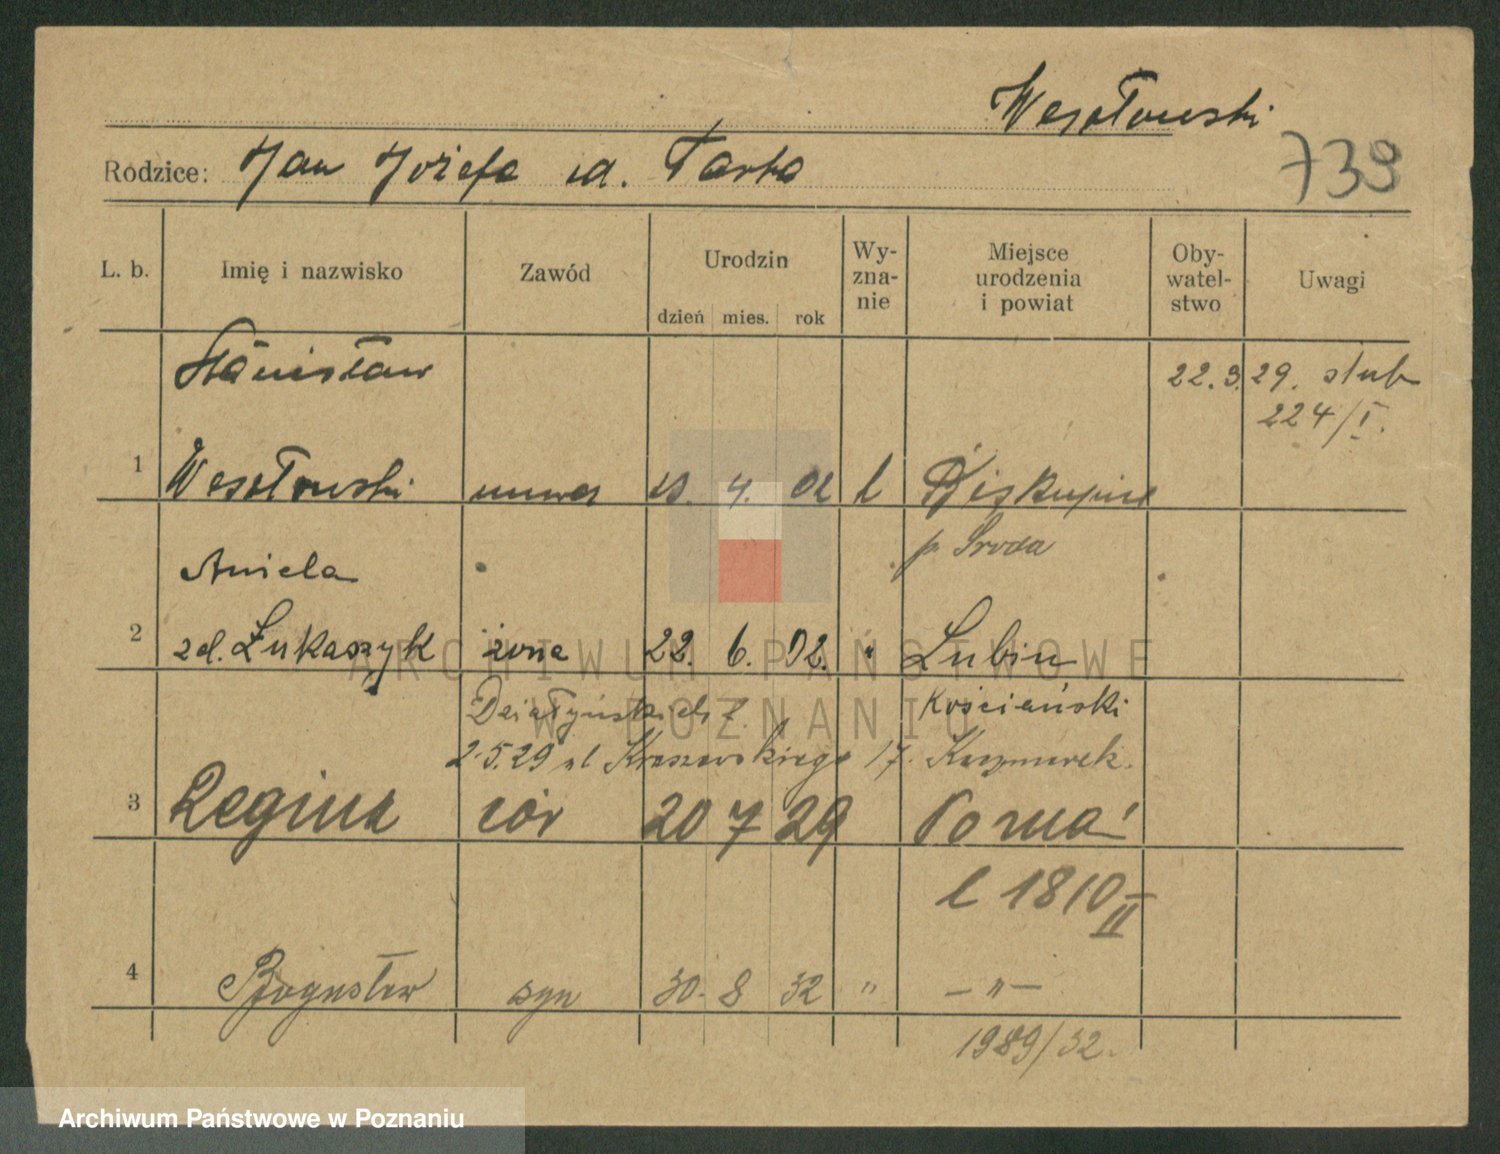 Wesołowski
Rodzice: Jan Józefa zd. Tarka
739
L. b. Imię i nazwisko Zawód Urodzin Wy-zna-nie Miejsce urodzenia i powiat Oby-watel-stwo Uwagi
dzień mies. rok
Stanisław 22.3.29. slub
224/I.
1 Wesołowski 4. 02 Biskupice
p. Środa
Aniela
2 zd. Łukaszyk żona 22. 6. 02. " Lubiń
Działyńskich 7. Kościański
2.5.29 ul Kraszewskiego 17. Kaczmarek.
3 Regina cór 20 7 29 Poznań
l 1810 II
4 Bogusław syn 30. 8 32 " — " —
1989/32.
ARCHIWUM PAŃSTWOWE
W POZNANIU
Archiwum Państwowe w Poznaniu